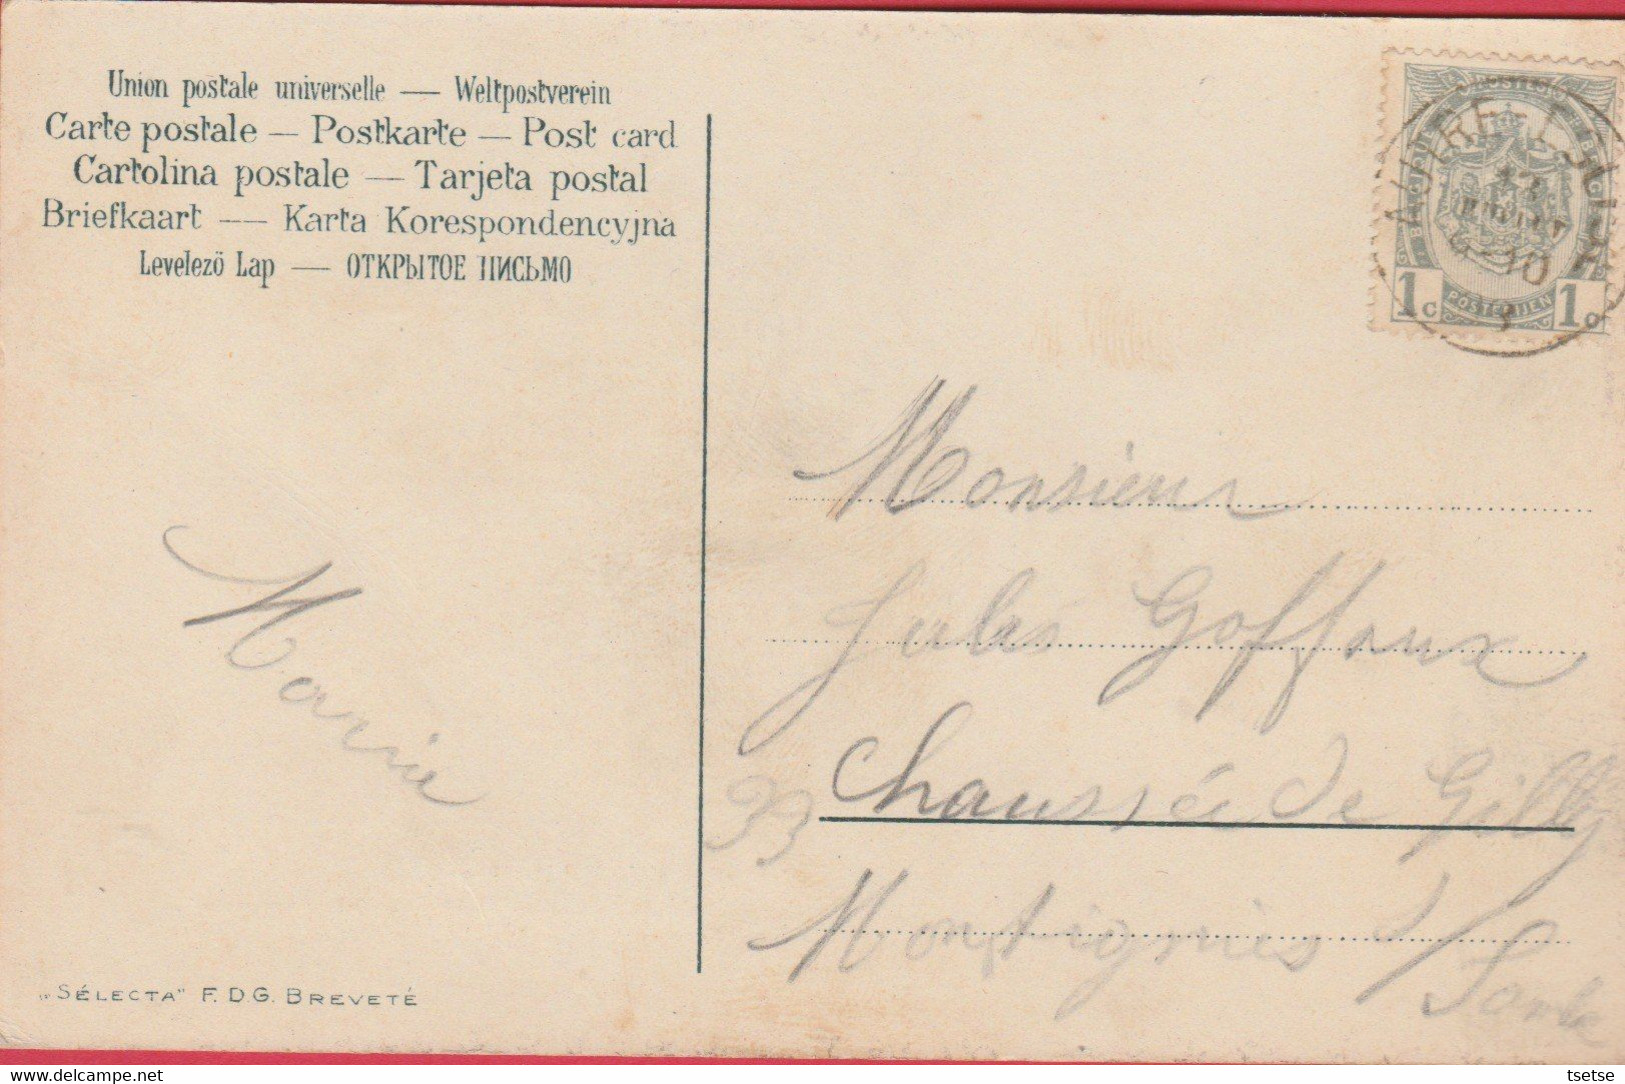 Union postale universelle — Weltpostverein
Carte postale — Postkarte — Post card
Cartolina postale — Tarjeta postal
Briefkaart — Karta Korespondencyjna
Levelezö Lap — ОТКРЫТОЕ ПИСЬМО
BELGIQUE
BELGIË
1c
POSTERIJEN
1c
8-10
Monsieur
Jules Goffaux
33 Chaussée de Gilly
Montignies s/
Sambre
Marie
„SÉLECTA" F.D.G. BREVETÉ
tsetse